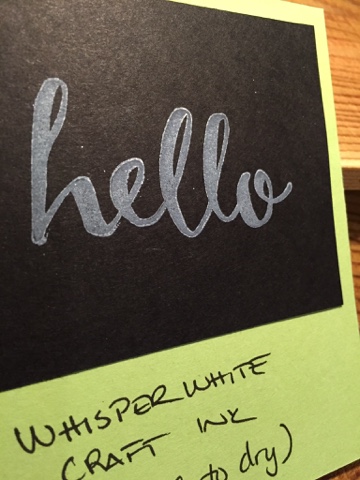 hello
WHISPER WHITE
CRAFT INK
to dry)